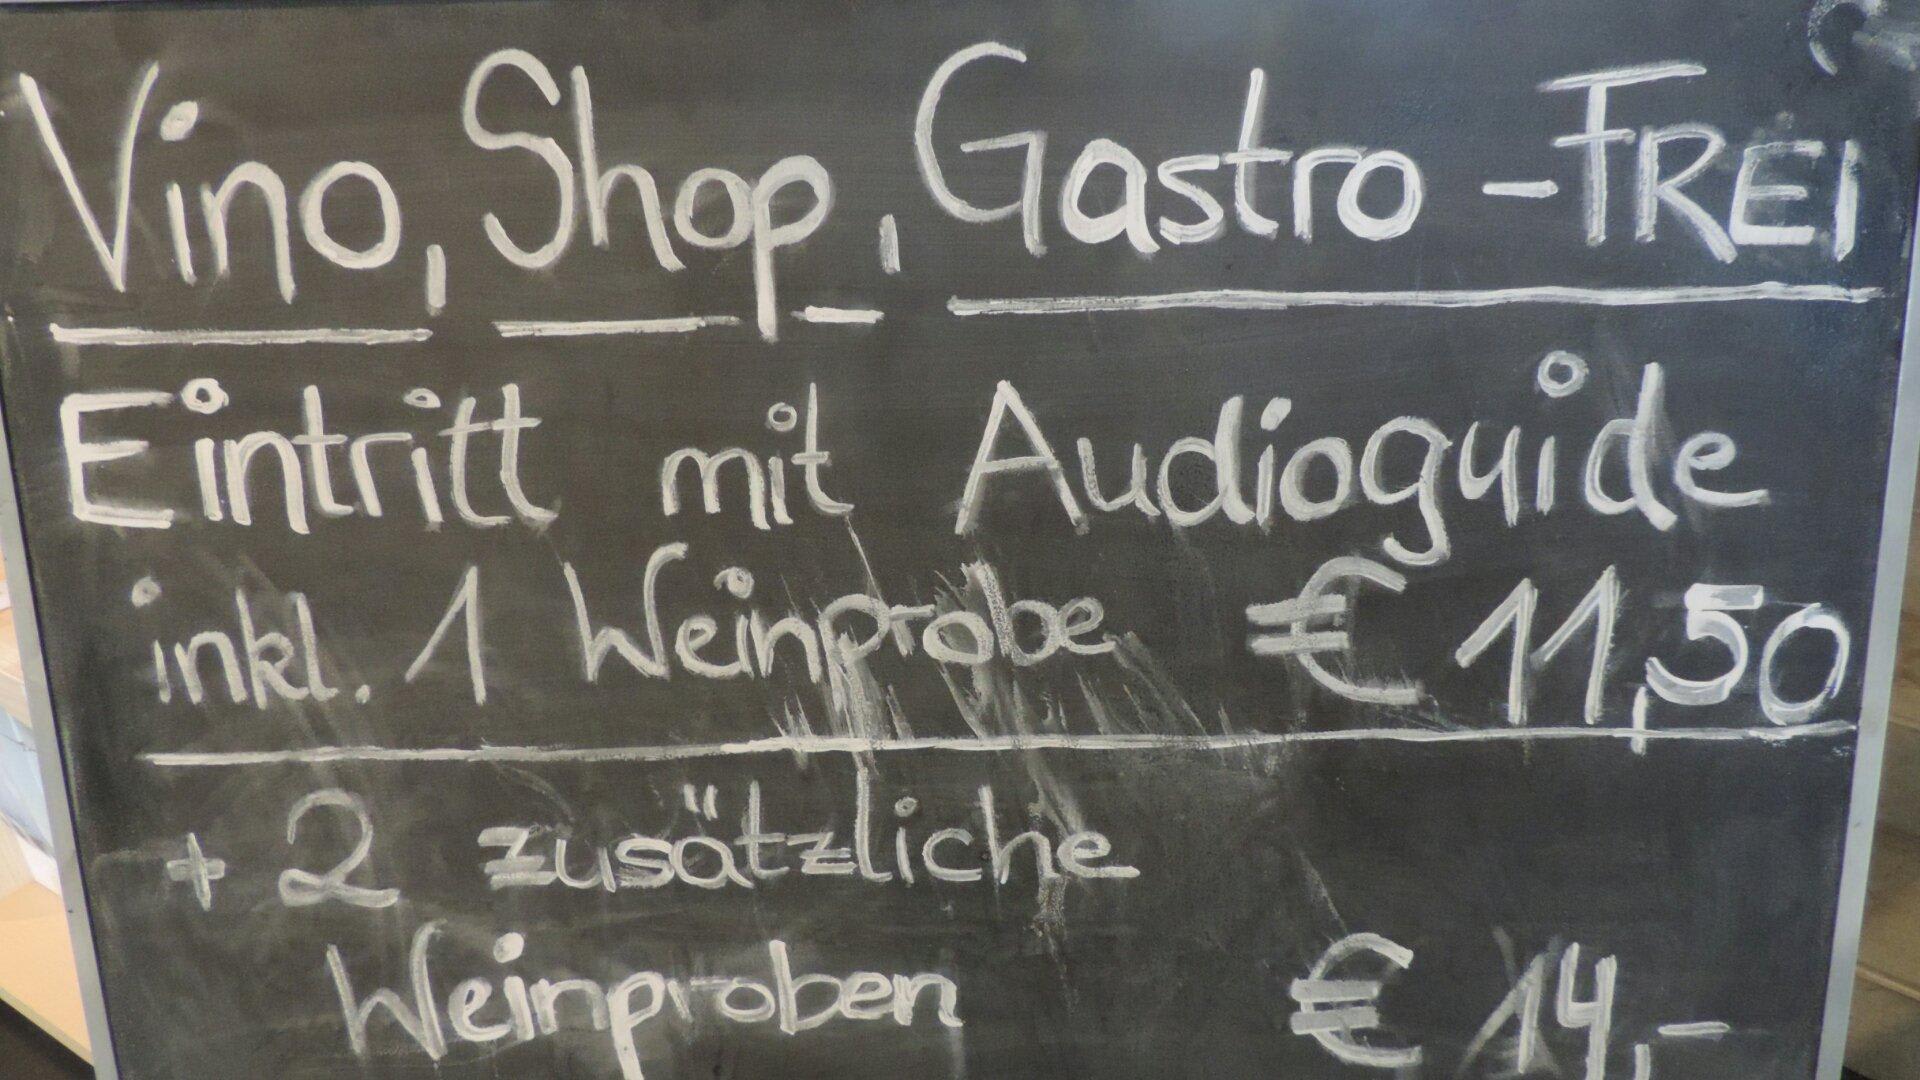 Vino, Shop, Gastro - FREI
Eintritt mit Audioguide
inkl. 1 Weinprobe € 11,50
+ 2 zusätzliche
Weinproben € 14,-